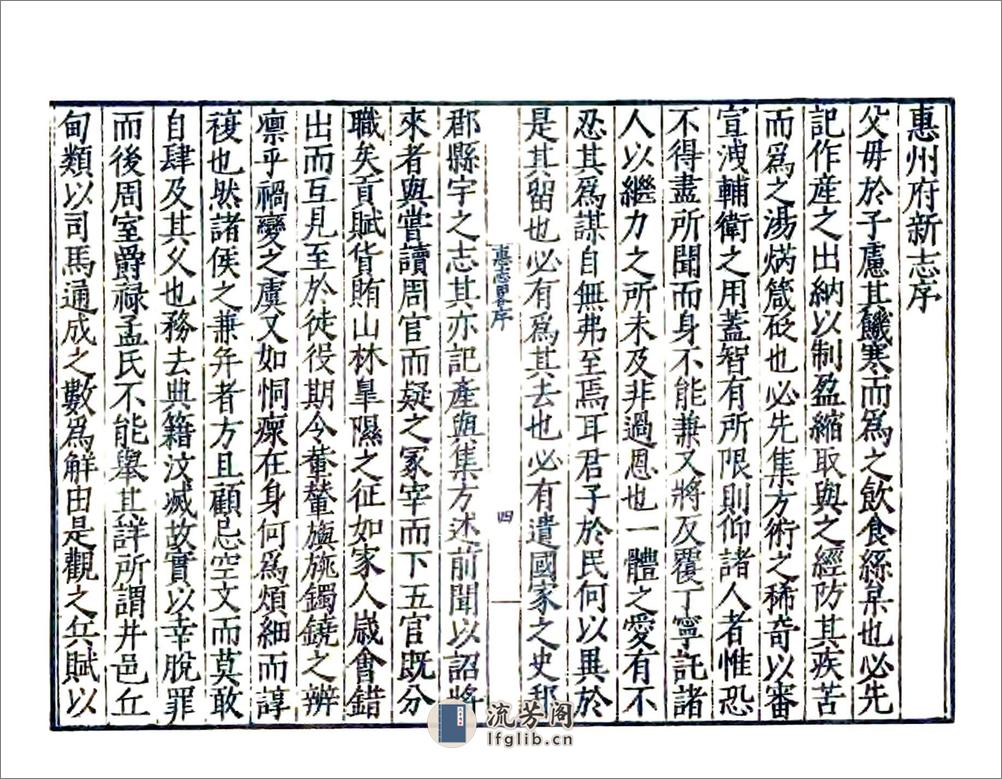 惠州府新志序
父毋於子慮其饑寒而爲之飲食絲枲也必先
記作產之出納以制盈縮取與之經防其疾苦
而爲之湯焫箴砭也必先集方術之稀奇以審
宣洩輔衛之用蓋智有所限則仰諸人者惟恐
不得盡所聞而身不能兼又將反覆丁寧託諸
人以繼力之所未及非過恩也一體之愛有不
忍其爲謀自無弗至焉耳君子於民何以異於
是其留也必有爲其去也必有遺國家之史
惠志序
四
郡縣宇之志其亦記產與集方述前聞以詔將
來者與嘗讀周官而疑之冢宰而下五官既分
職矣貢賦貨賄山林皐隰之征如家人歲會錯
出而互見至於徒役期令蕃旟旐鐲鐃之辨
凛乎禍變之虞又如恫瘝在身何爲煩細而諄
複也然諸侯之兼并者方且顧忌空文而莫敢
自肆及其久也務去典籍汶滅故實以幸脫罪
而後周室爵祿孟氏不能舉其詳所謂井邑丘
甸類以司馬通成之數爲解由是觀之兵賦以
流芳阁
lfglib.cn